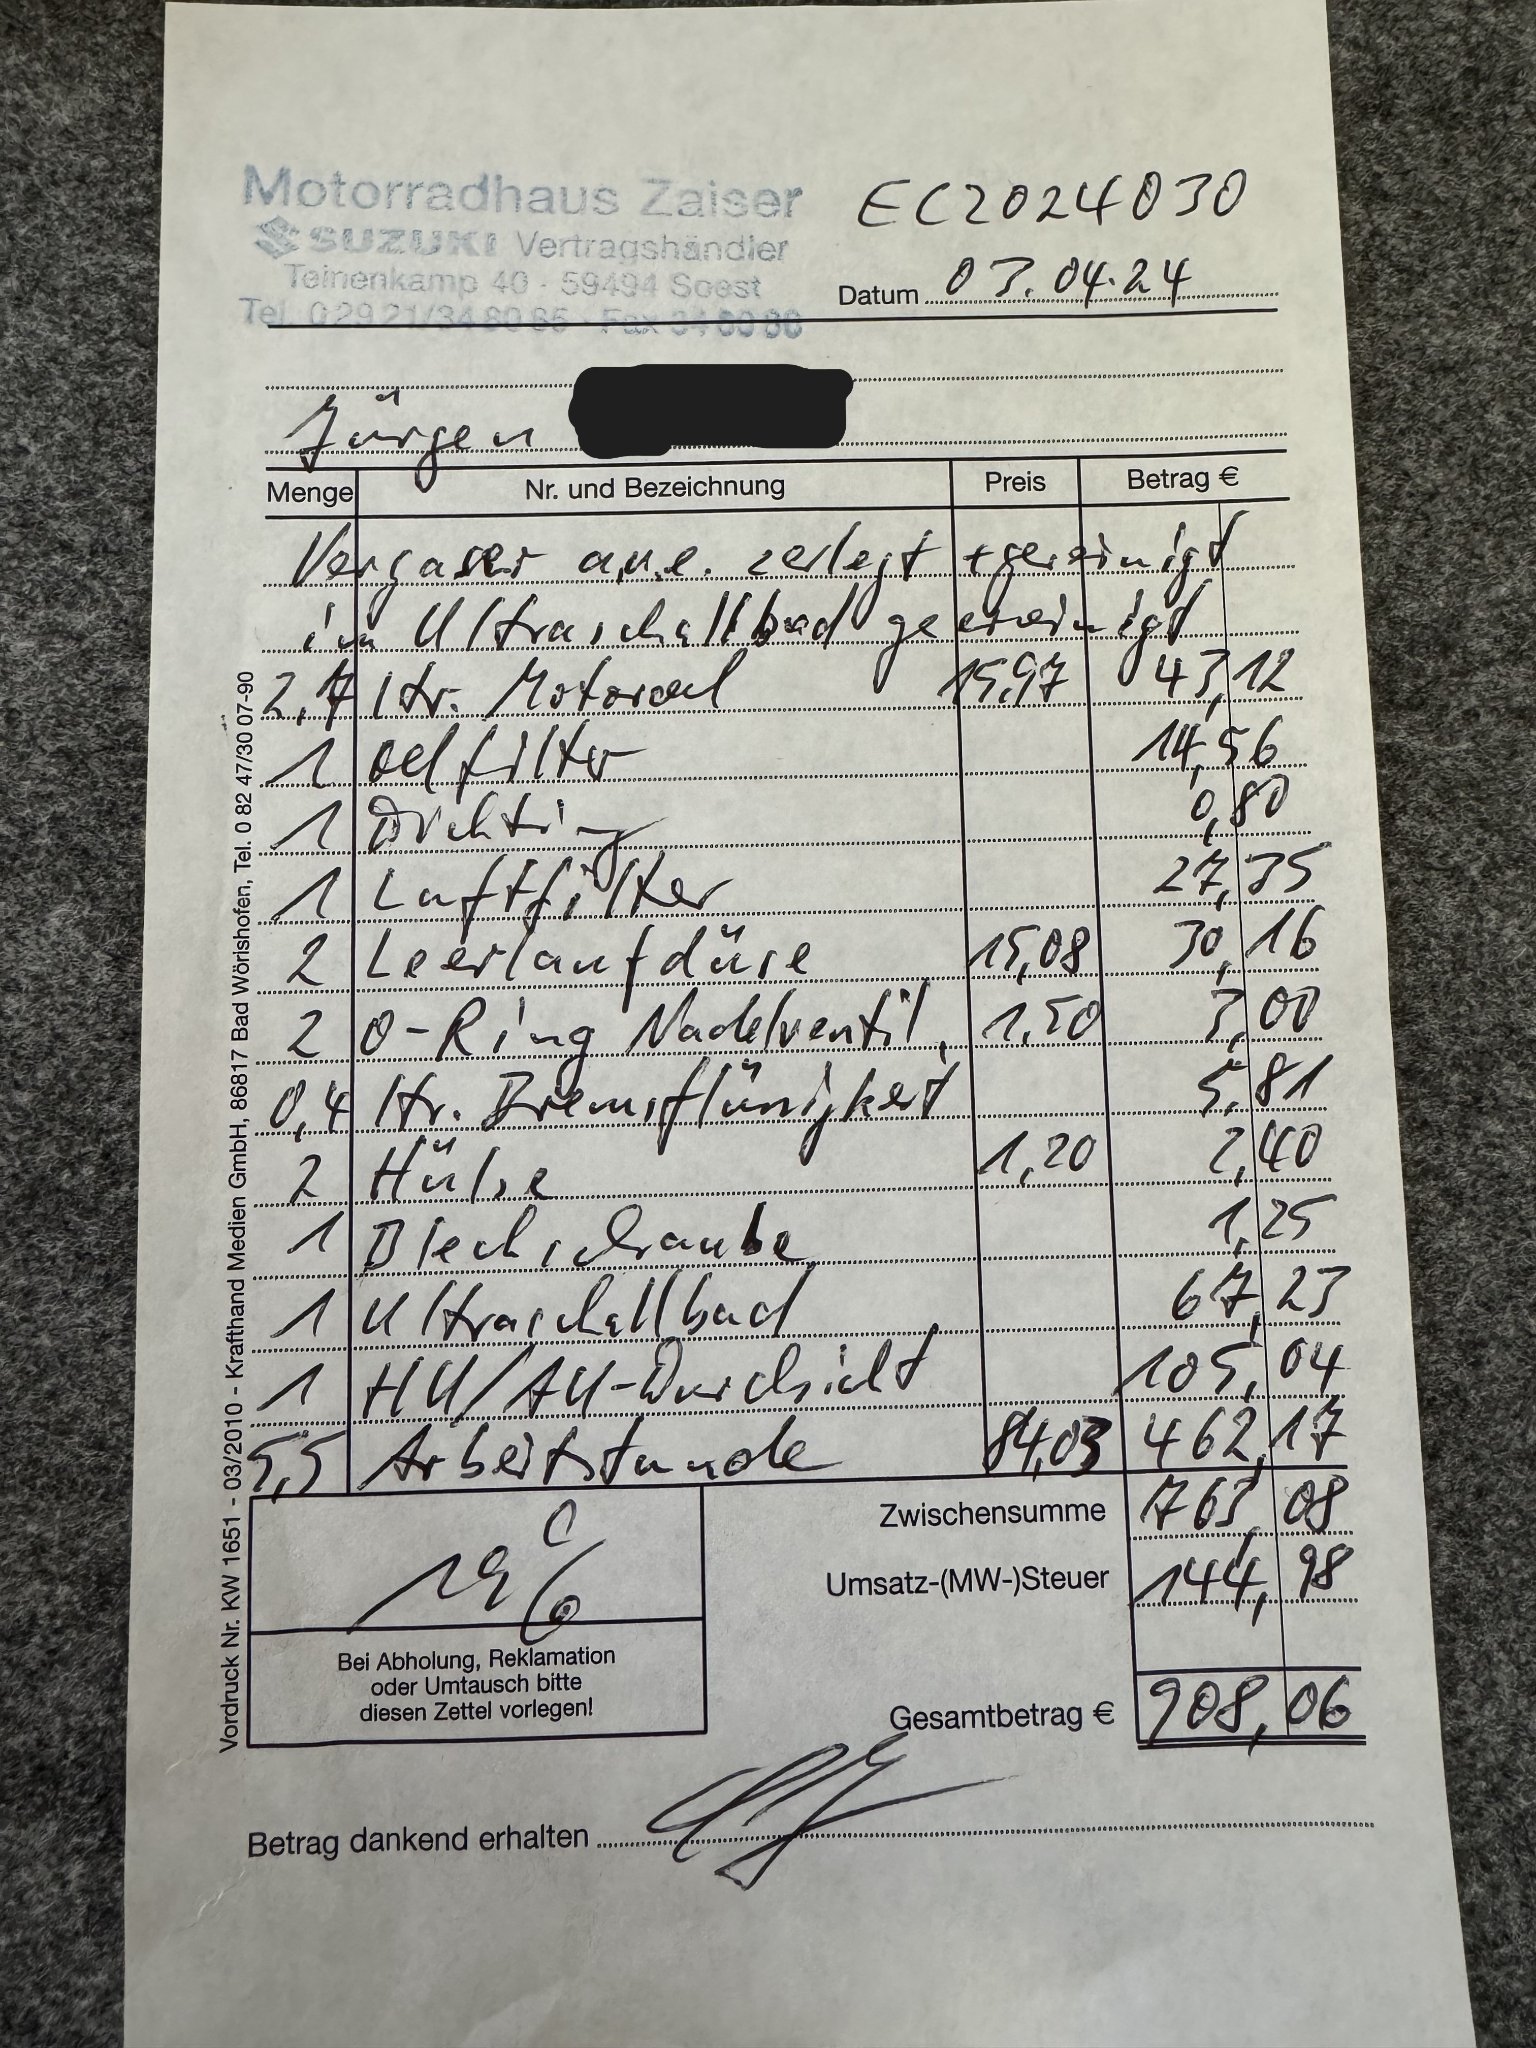 Motorradhaus Zaiser
EC2024030
SUZUKI Vertragshändler
Teinenkamp 40 - 59494 Soest
Datum 03.04.24
Tel. 0 29 21/34 80 85 - Fax 34 80 86
Jürgen
Menge Nr. und Bezeichnung Preis Betrag €
Vergaser a.u.e. zerlegt + gereinigt
im Ultraschallbad gereinigt
2,7 ltr. Motoroel 15,97 43,12
1 Oelfilter 14,56
1 Dichtring 0,80
1 Luftfilter 27,35
2 Leerlaufdüse 15,08 30,16
2 O-Ring Nadelventil, 1,50 3,00
0,4 ltr. Bremsflünigkeit 5,81
2 Hülse 1,20 2,40
1 Blechschraube 1,25
1 Ultraschallbad 67,23
1 HU/AU-Durchsicht 105,04
5,5 Arbeitstunde 84,03 462,17
Zwischensumme 763,08
19%
Umsatz-(MW-)Steuer 144,98
Bei Abholung, Reklamation
oder Umtausch bitte
diesen Zettel vorlegen!
Gesamtbetrag € 908,06
Betrag dankend erhalten
Vordruck Nr. KW 1651 - 03/2010 - Krafthand Medien GmbH, 86817 Bad Wörishofen, Tel. 0 82 47/30 07-90